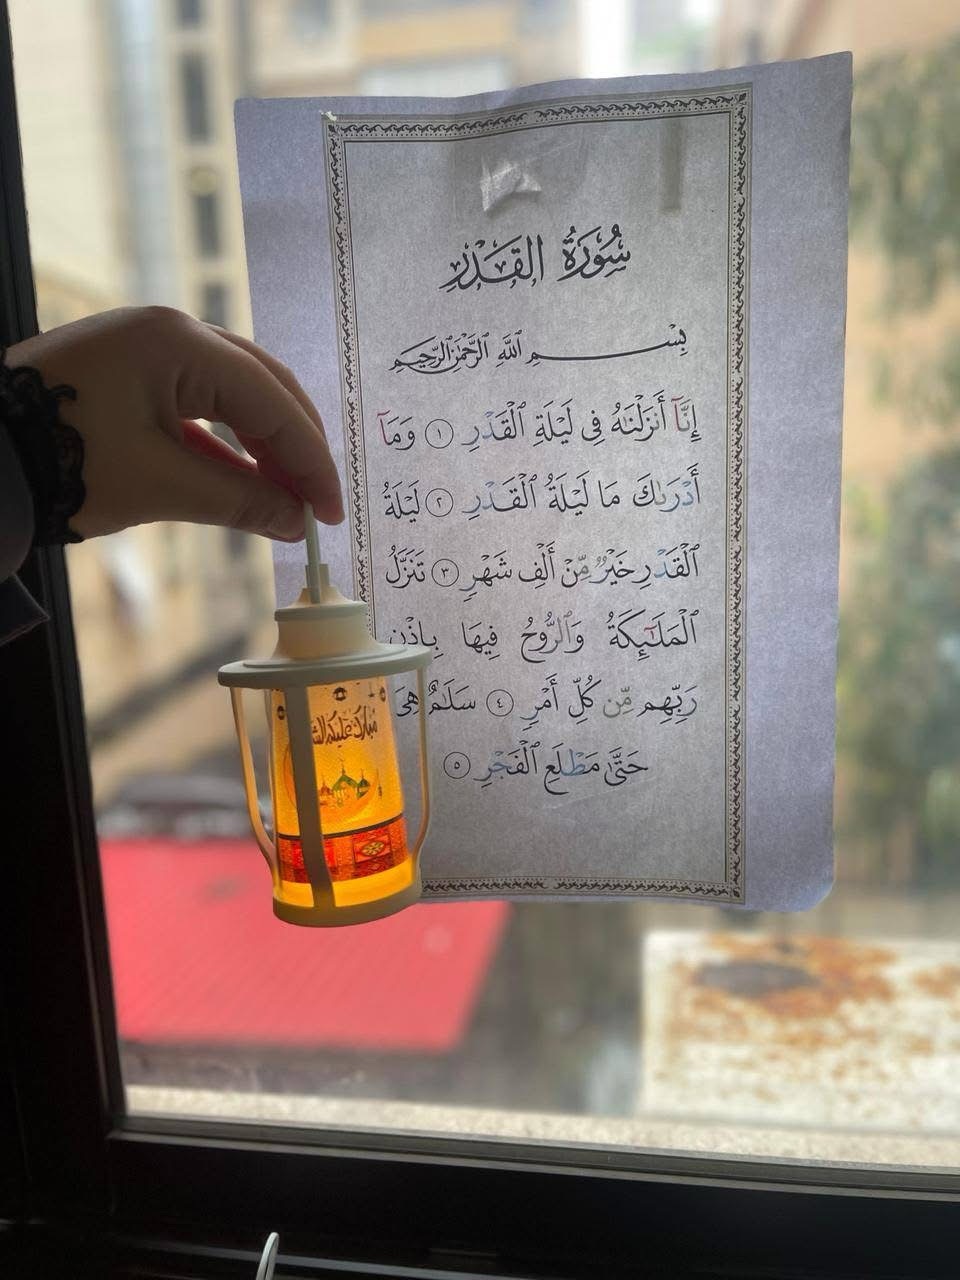 سُورَةُ القَدْرِ
بِسْمِ ٱللَّهِ ٱلرَّحْمَٰنِ ٱلرَّحِيمِ
إِنَّآ أَنزَلْنَٰهُ فِى لَيْلَةِ ٱلْقَدْرِ ١ وَمَآ
أَدْرَىٰكَ مَا لَيْلَةُ ٱلْقَدْرِ ٢ لَيْلَةُ
ٱلْقَدْرِ خَيْرٌ مِّنْ أَلْفِ شَهْرٍ ٣ تَنَزَّلُ
ٱلْمَلَٰٓئِكَةُ وَٱلرُّوحُ فِيهَا بِإِذْنِ
رَبِّهِم مِّن كُلِّ أَمْرٍ ٤ سَلَٰمٌ هِىَ
حَتَّىٰ مَطْلَعِ ٱلْفَجْرِ ٥
مبارك عليكم